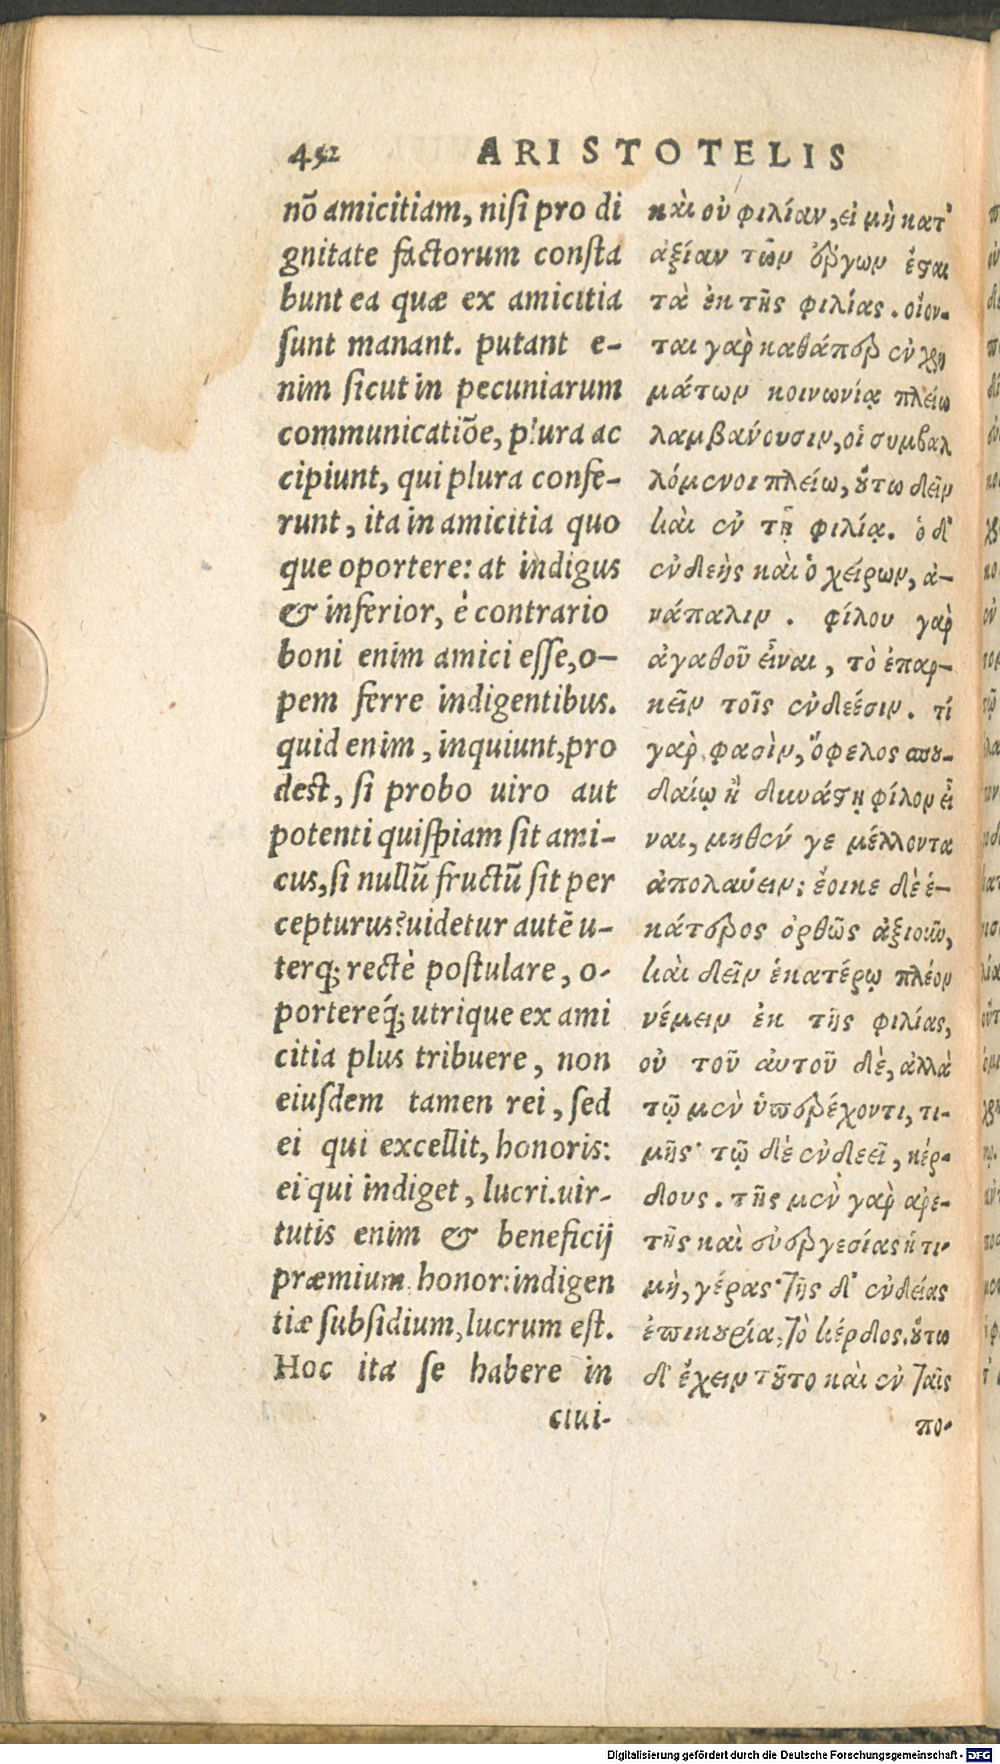 452 ARISTOTELIS
nõ amicitiam, nisi pro di
gnitate factorum consta
bunt ea quæ ex amicitia
sunt manant. putant e-
nim sicut in pecuniarum
communicatiõe, plura ac
cipiunt, qui plura confe-
runt, ita in amicitia quo
que oportere: at indigus
& inferior, è contrario
boni enim amici esse, o-
pem ferre indigentibus.
quid enim, inquiunt, pro
dest, si probo uiro aut
potenti quispiam sit ami-
cus, si nullũ fructũ sit per
cepturus? uidetur autẽ u-
terq; rectè postulare, o-
portereq́; utrique ex ami
citia plus tribuere, non
eiusdem tamen rei, sed
ei qui excellit, honoris:
ei qui indiget, lucri. uir-
tutis enim & beneficij
præmium honor: indigen
tiæ subsidium, lucrum est.
Hoc ita se habere in
ciui-
καὶ οὐ φιλίαν, εἰ μὴ κατ᾽
ἀξίαν τῶν ἔργων ἔσται
τὰ ἐκ τῆς φιλίας. οἴον-
ται γὰρ καθάπερ ἐν χρη
μάτων κοινωνίᾳ πλείω
λαμβάνουσιν, οἱ συμβαλ
λόμενοι πλείω, οὕτω δεῖν
καὶ ἐν τῇ φιλίᾳ. ὁ δ᾽
ἐνδεὴς καὶ ὁ χείρων, ἀ-
νάπαλιν. φίλου γὰρ
ἀγαθοῦ εἶναι, τὸ ἐπαρ-
κεῖν τοῖς ἐνδεέσιν. τί
γὰρ φασὶν, ὄφελος σπου-
δαίῳ ἢ δυνάστῃ φίλον εἶ
ναι, μηθέν γε μέλλοντα
ἀπολαύειν; ἔοικε δὲ ἑ-
κάτερος ὀρθῶς ἀξιοῦν,
καὶ δεῖν ἑκατέρῳ πλέον
νέμειν ἐκ τῆς φιλίας,
οὐ τοῦ αὐτοῦ δὲ, ἀλλὰ
τῷ μὲν ὑπερέχοντι, τι-
μῆς· τῷ δὲ ἐνδεεῖ, κέρ-
δους. τῆς μὲν γὰρ ἀρε-
τῆς καὶ εὐεργεσίας ἡ τι-
μὴ, γέρας· τῆς δ᾽ ἐνδείας
ἐπικουρία, τὸ κέρδος. οὕτω
δ᾽ ἔχειν τοῦτο καὶ ἐν ταῖς
πο-
Digitalisierung gefördert durch die Deutsche Forschungsgemeinschaft - DFG